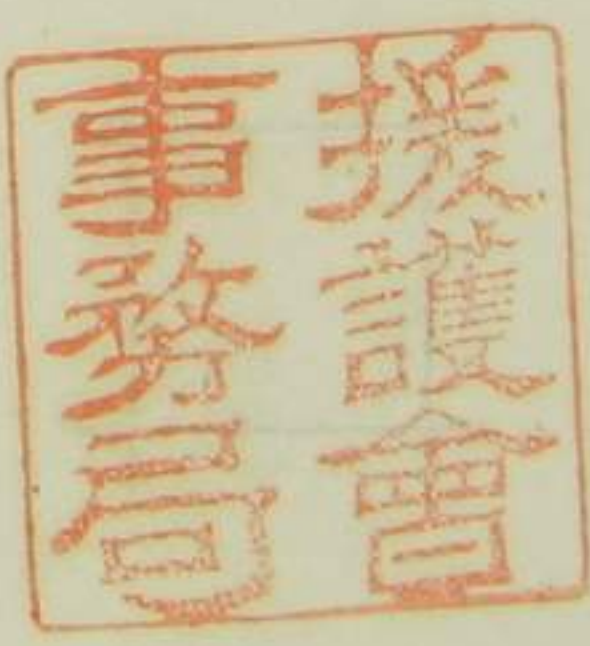 援護會
事務局